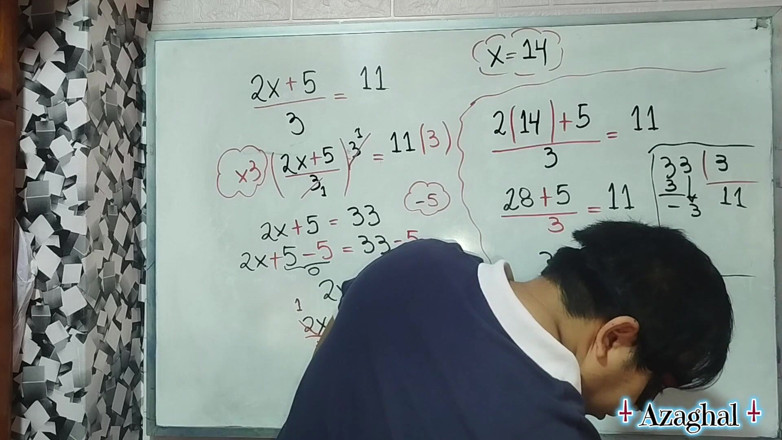 x = 14
2x + 5 / 3 = 11
x3 ( 2x+5 / 3 1 ) 3 1 = 11 (3)
-5
2x + 5 = 33
2x + 5 - 5 = 33 - 5
0
2x
1
2x
2(14) + 5 / 3 = 11
28 + 5 / 3 = 11
33 | 3
3 11
- 3
Azaghal